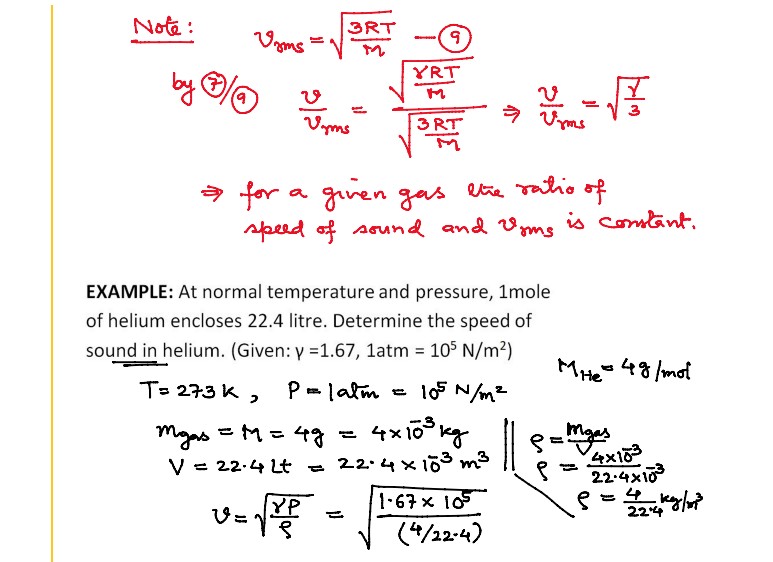 Note: v_rms = √(3RT/M) — ⑨
by ⑦/⑨ v/v_rms = √(γRT/M) / √(3RT/M) ⇒ v/v_rms = √(γ/3)
⇒ for a given gas the ratio of
speed of sound and v_rms is constant.
EXAMPLE: At normal temperature and pressure, 1mole
of helium encloses 22.4 litre. Determine the speed of
sound in helium. (Given: γ =1.67, 1atm = 10⁵ N/m²)
M_He = 4g/mol
T = 273 K , P = 1 atm = 10⁵ N/m²
m_gas = M = 4g = 4×10⁻³ kg
V = 22.4 Lt = 22.4 × 10⁻³ m³
v = √(γP/ρ) = √(1.67 × 10⁵ / (4/22.4))
ρ = m_gas/V
ρ = 4×10⁻³ / 22.4×10⁻³
ρ = 4/22.4 kg/m³